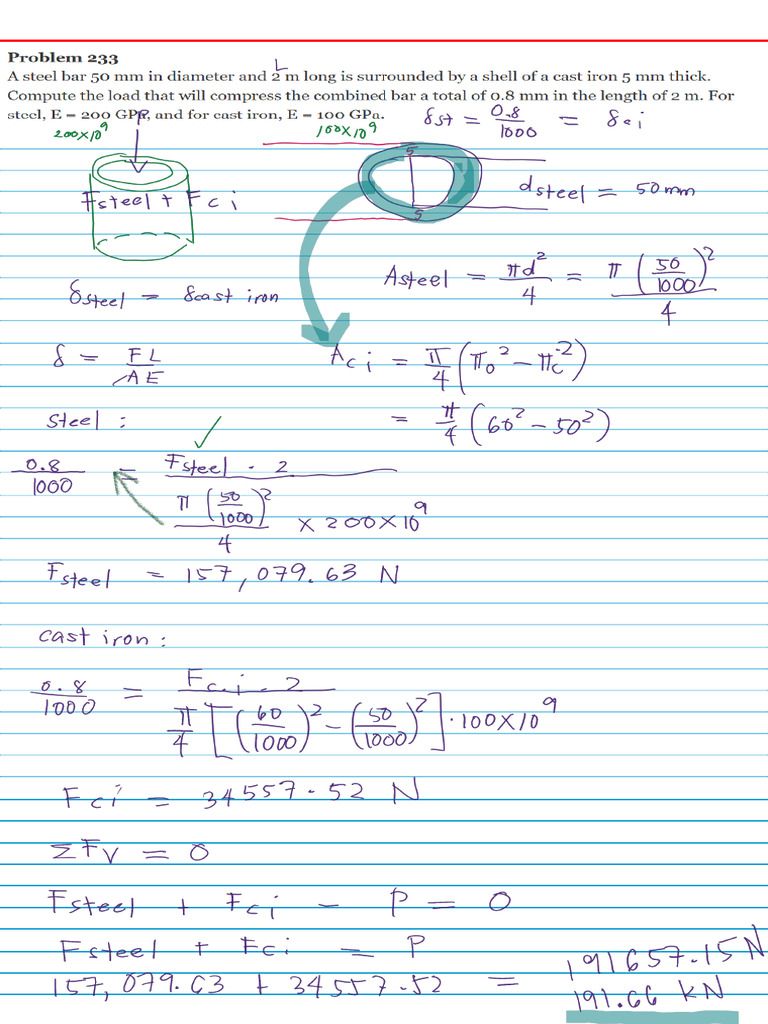 Problem 233
L
A steel bar 50 mm in diameter and 2 m long is surrounded by a shell of a cast iron 5 mm thick.
Compute the load that will compress the combined bar a total of 0.8 mm in the length of 2 m. For
steel, E = 200 GPa, and for cast iron, E = 100 GPa.
δst = 0.8/1000 = δci
200x10^9
P
100x10^9
5
Fsteel + Fci
5
dsteel = 50mm
Asteel = πd²/4 = π(50/1000)²/4
δsteel = δcast iron
δ = FL/AE
Aci = π/4 (π0² - πc²)
steel:
= π/4 (60² - 50²)
0.8/1000 = Fsteel · 2 / π(50/1000)²/4 x 200x10^9
Fsteel = 157,079.63 N
cast iron:
0.8/1000 = Fc.i · 2 / π/4 [(60/1000)² - (50/1000)²] · 100x10^9
Fci = 34557.52 N
ΣFv = 0
Fsteel + Fci - P = 0
Fsteel + Fci = P
157,079.63 + 34557.52 = 191657.15N
191.66 KN